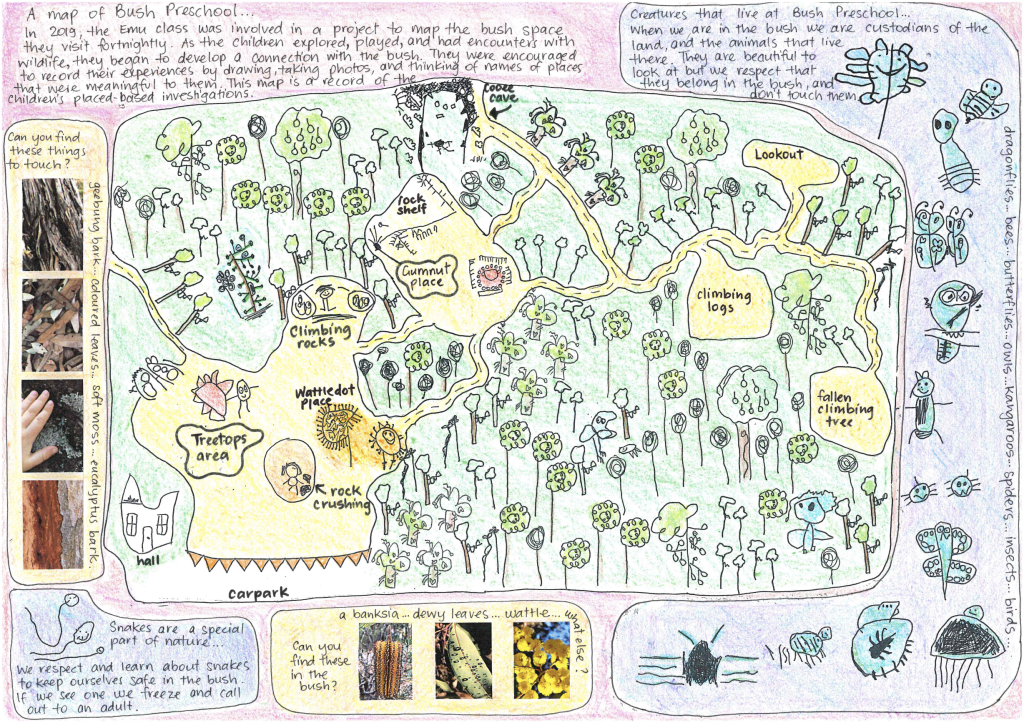 A map of Bush Preschool...
In 2019, the Emu class was involved in a project to map the bush space
they visit fortnightly. As the children explored, played, and had encounters with
wildlife, they began to develop a connection with the bush. They were encouraged
to record their experiences by drawing, taking photos, and thinking of names of places
that were meaningful to them. This map is a record of the
children's placed-based investigations.
Creatures that live at Bush Preschool...
When we are in the bush we are custodians of the
land, and the animals that live
there. They are beautiful to
look at but we respect that
they belong in the bush, and
don't touch them
Can you find
these things
to touch?
geebung bark... coloured leaves... soft moss... eucalyptus bark
cave
Lookout
rock
shelf
Gumnut
place
climbing
logs
Climbing
rocks
Wattledot
place
fallen
climbing
tree
Treetops
area
rock
crushing
hall
carpark
dragonflies... bees... butterflies... owls... kangaroos... spiders... insects... birds...
Snakes are a special
part of nature...
We respect and learn about snakes
to keep ourselves safe in the bush.
If we see one we freeze and call
out to an adult.
a banksia... dewy leaves... wattle... what else?
Can you
find these
in the
bush?